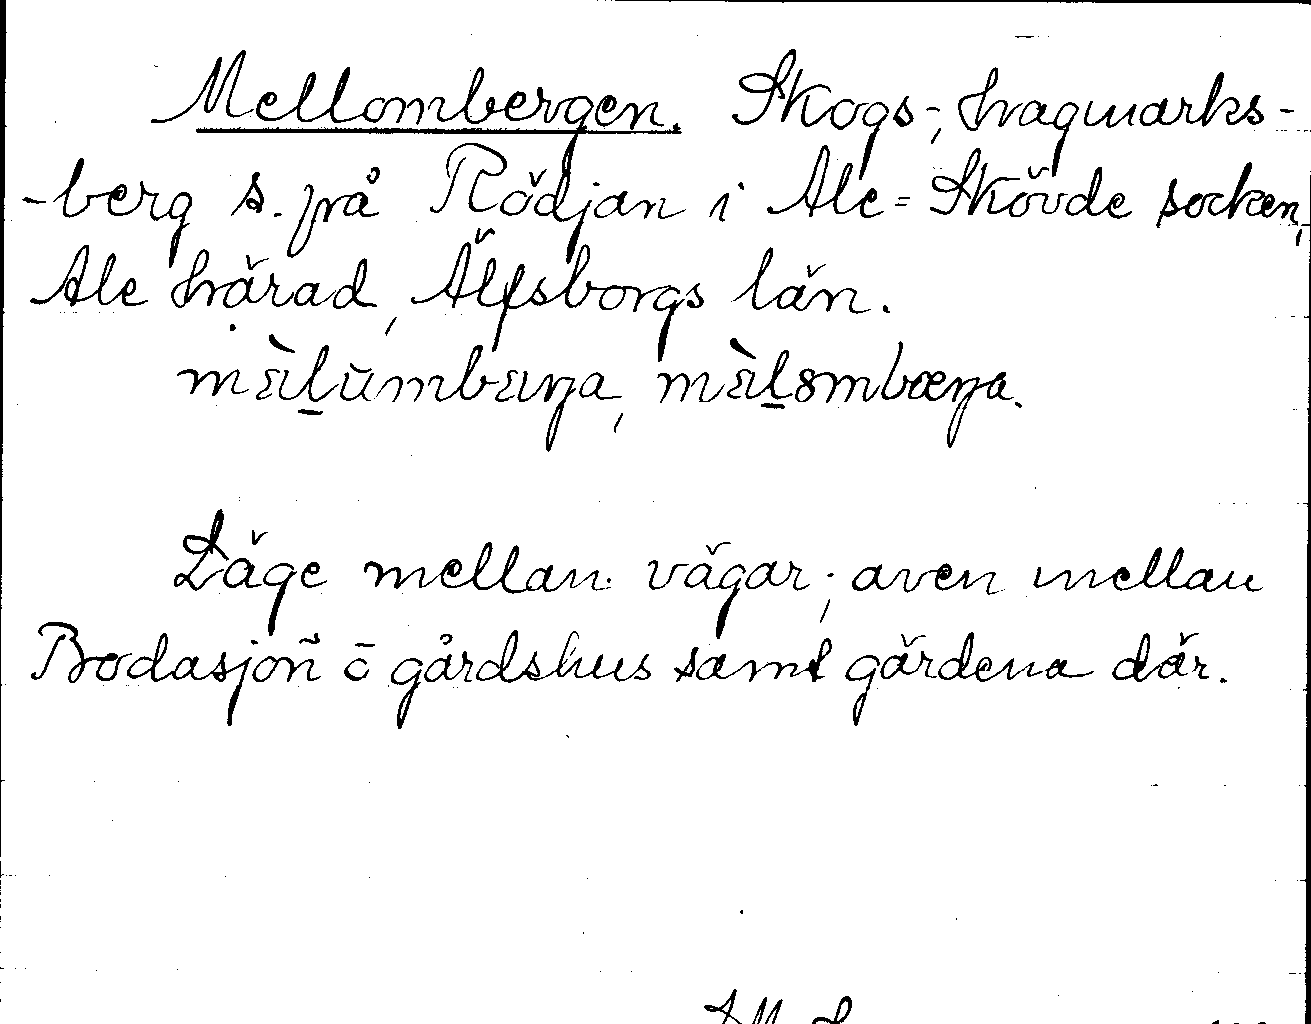 Mellombergen. Skogs-, hagmarks-
-berg s. på Rödjan i Ale-Skövde socken,
Ale härad, Älfsborgs län.
Läge mellan vägar; även mellan
Bodasjön̄ ō gårdshus samt gärdena där.